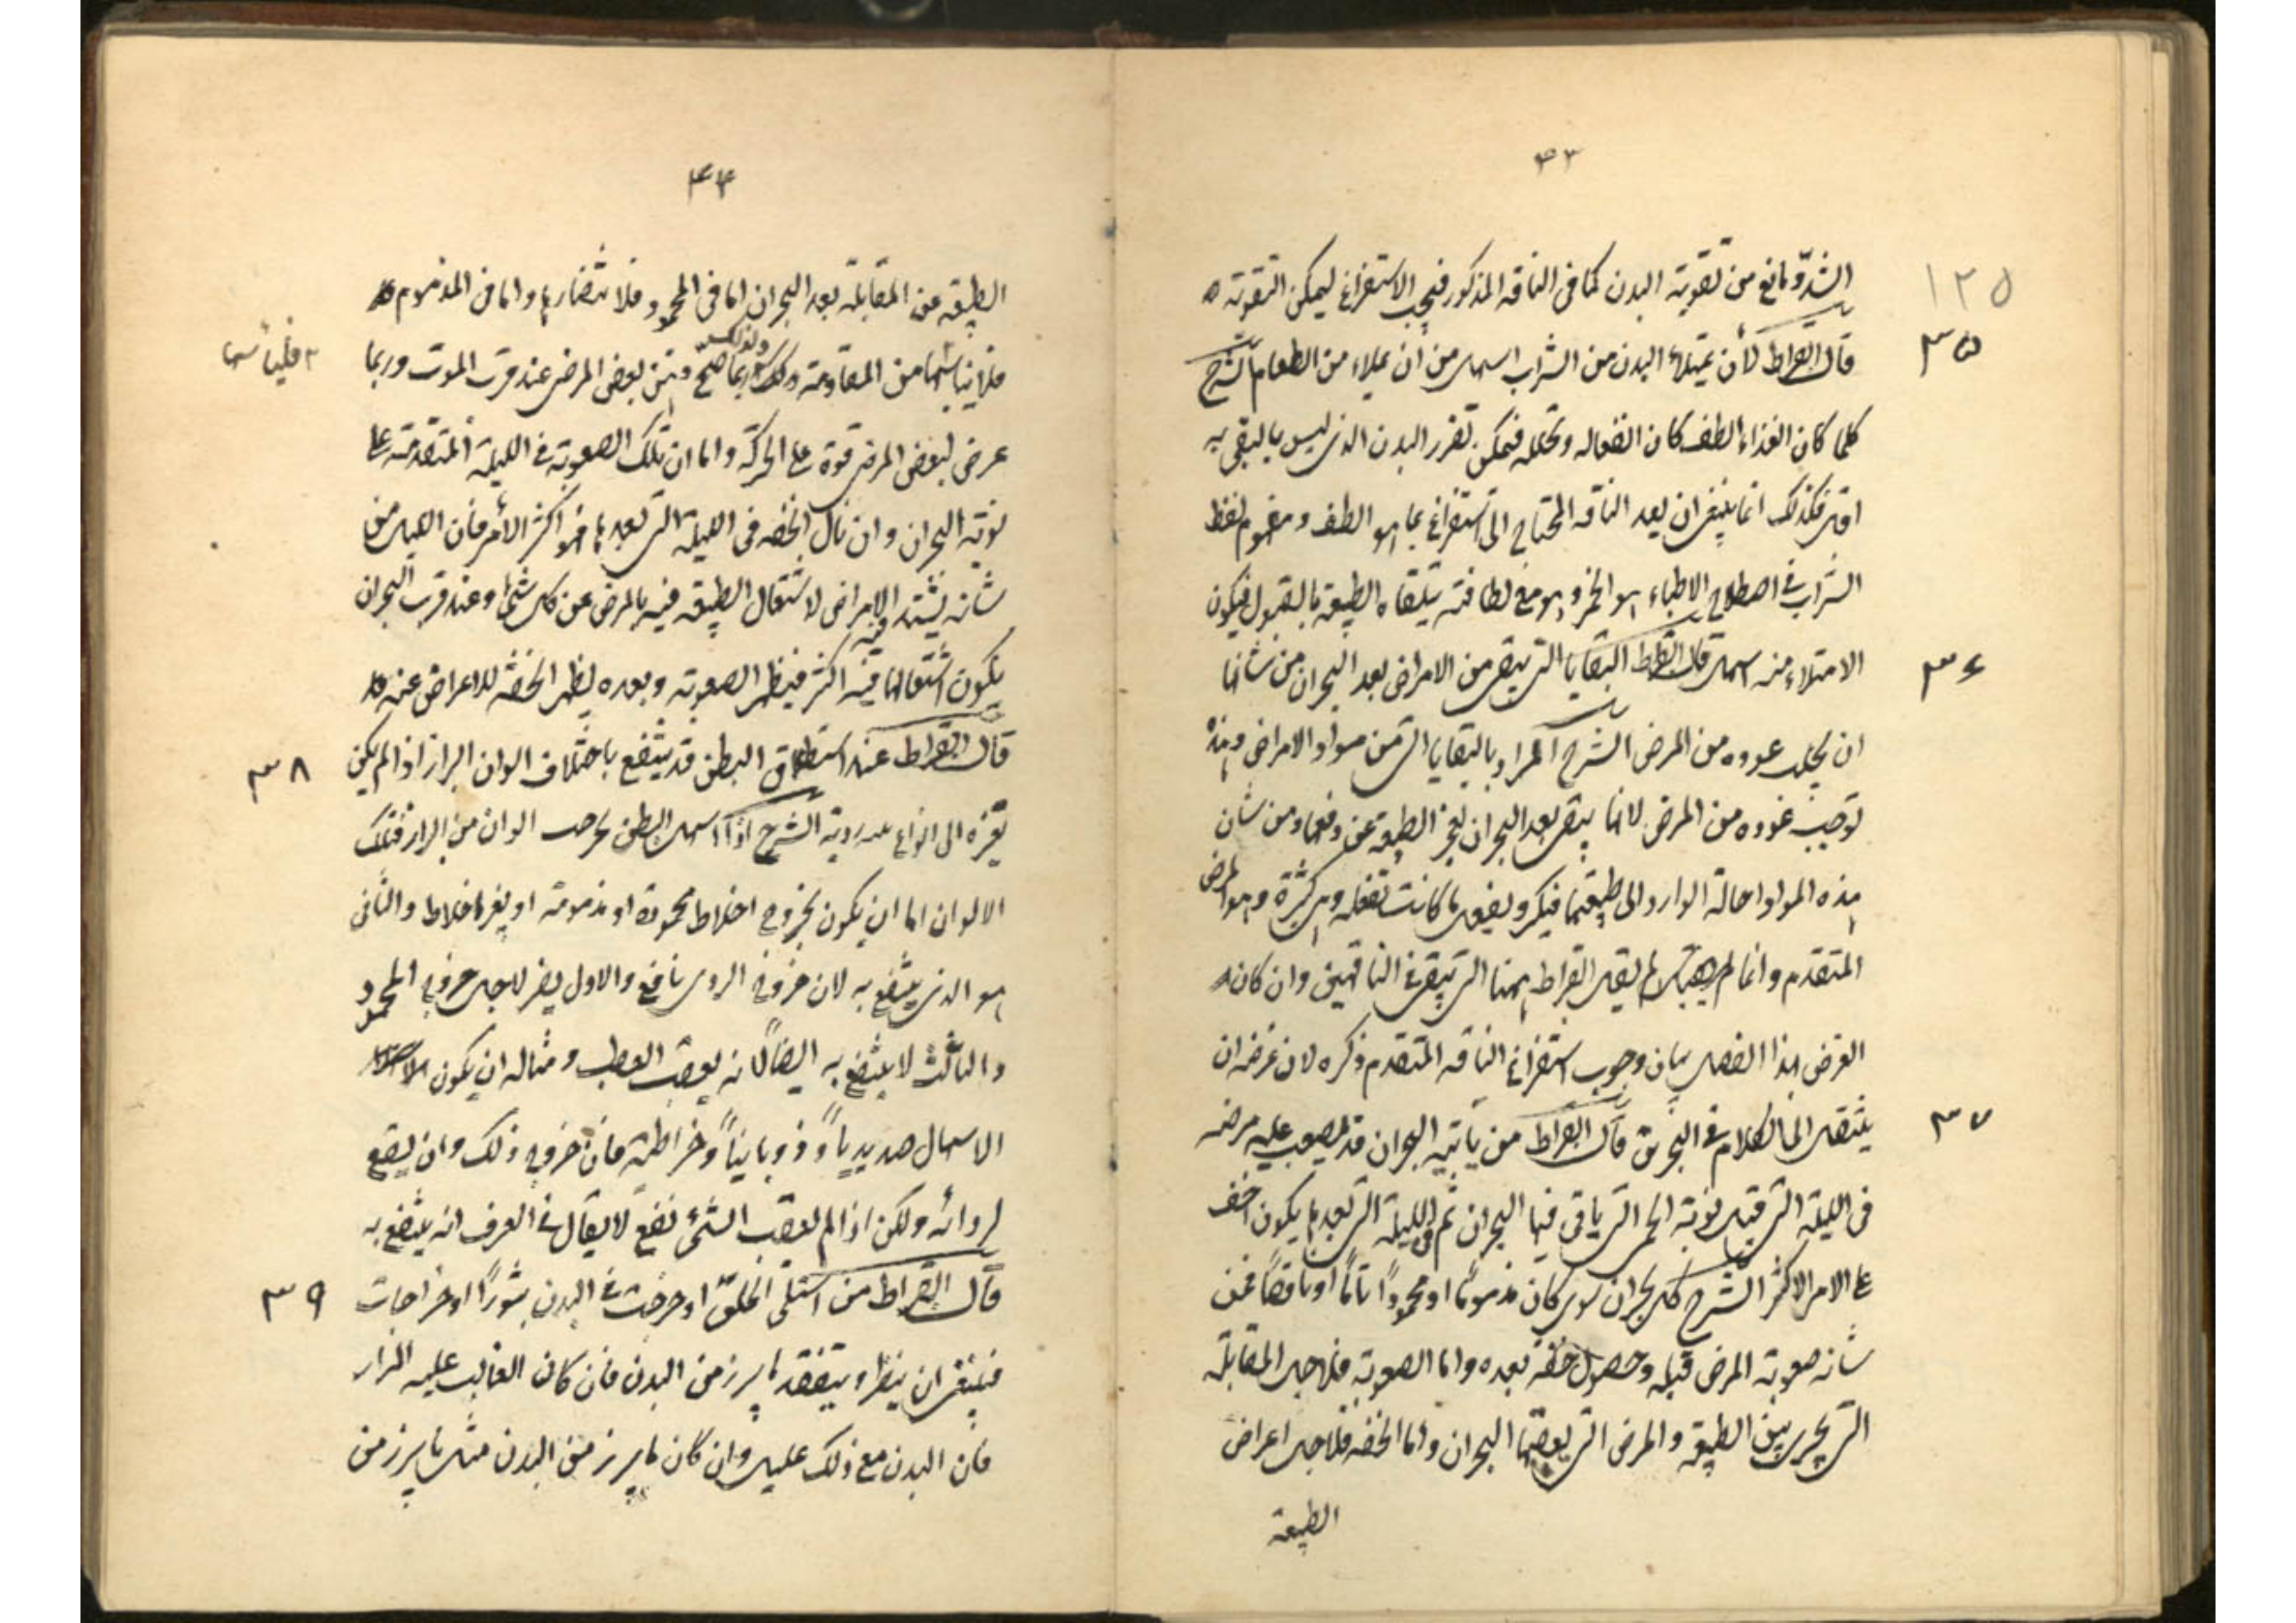 ٤٣
١٢٥
البدن مانع من تقوية البدن كما فى الناقه المذكور فيجب الاستفراغ ليمكن التقوية
٣٥
قال ابقراط لأن يمتلأ البدن من الشراب اسهل من ان يملاء من الطعام الشرح
كلما كان الغذاء الطف كان انفعاله وتحلله فيمكن البدن الذى ليس بالنقى به
اقل فكذلك انما ينبغى ان يعد الناقه المحتاج الى استفراغ بما هو الطف ومفهوم لفظ
الشراب فى اصطلاح الاطباء هو الخمر وهو مع لطافته يتلقاه الطبيعة بالقبول فيكون
٣٦
الامتلاء منه اسهل قال ابقراط البقايا التى تبقى من الامراض بعد البحران من شانها
ان يجلب عوده من المرض الشرح المراد بالبقايا التى من مواد الامراض وهذه
توجب عوده من المرض لانها يبقى بعد البحران لعجز الطبيعة عن دفعها ومن شان
هذه المواد احالة الوارد الى طبيعتها فيكثر ويفعل ما كانت تفعله وهى كثيرة وهو المرض
المتقدم وانما لم يقل ابقراط ههنا التى تبقى فى الناقهين وان كان
الغرض بهذا الفصل بيان وجوب استفراغ الناقه المتقدم ذكره لان غرضه ان
٣٧
ينتقل الى الكلام فى البحران قال ابقراط من يأتيه البحران قد يصعب عليه مرضه
فى الليلة التى قبل نوبة الحمى التى ياتى فيها البحران ثم فى الليلة التى بعدها يكون اخف
على الامر الاكثر الشرح كل بحران سوى كان مذموما او محمودا تاما او ناقصا فمن
شانه صعوبة المرض قبله وحصول خفة بعده واما الصعوبة فلاجل المقابلة
التى يجرى بين الطبيعة والمرض التى يعقبها البحران واما الخفة فلاجل اعراض
الطبيعة
٤٤
الطبيعة عن المقابلة بعد البحران اما فى المحمود فلانتصارها واما فى المذموم
فلايناسها من المقاومة ولذلك ربما صح ذهن بعض المرضى عند قرب الموت وربما
عرض لبعض المرضى قوة على الحركة واما ان تلك الصعوبة فى الليلة المتقدمة على
نوبة البحران وان تال الخفة فى الليلة التى بعدها فهو اكثر الأمر فان الليل من
شانه يشتد الامراض لاشتغال الطبيعة فيه بالمرض عن كل شئ وعند قرب البحران
يكون اشتغالها فيه اكثر فيظهر الصعوبة وبعده يظهر الخفة للاعراض عنه
٣٨
قال ابقراط عند استطلاق البطن قد ينتفع باختلاف الوان البراز اذا لم يكن
تغيره الى انواع منه ردية الشرح اذا اسهل البطن بخروج الوان من البراز فتلك
الالوان اما ان يكون بخروج اخلاط محمودة او مذمومة او بغير اخلاط والثانى
هو الذى ينتفع به لان خروج الردى نافع والاول يضر لاجل خروج المحمود
والثالث لا ينتفع به ايضا لانه يعقب العطب ومثاله ان يكون
الاسهال صديديا وذوبانيا وخراطة فان خروج ذلك وان يقع
لردائه ولكن اذا لم يعقب الشئ نفع لا يقال فى العرف انه ينتفع به
٣٩
قال ابقراط من اشتكى الحلق او خرجت فى البدن بثورًا او خراجات
فينبغى ان ينظر ويتفقد ما يبرز من البدن فان كان الغالب عليه المرار
فان البدن مع ذلك عليل وان كان ما يبرز من البدن مثل ما يبرز من